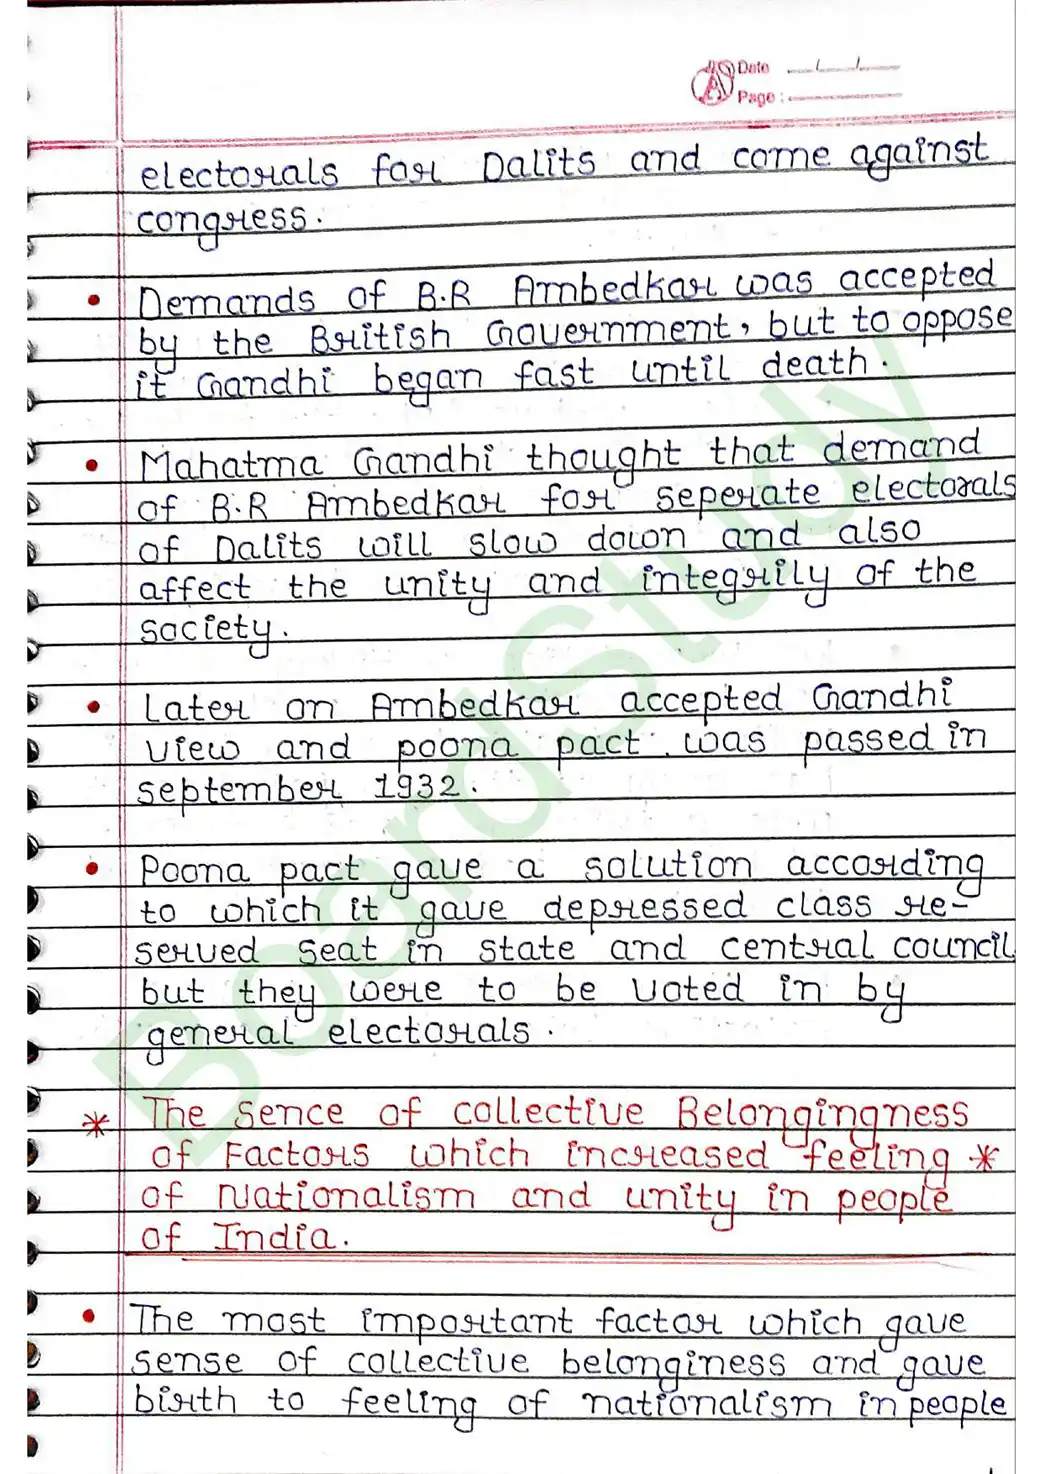 Date
Page :
electorals for Dalits and come against
congress.
• Demands of B.R Ambedkar was accepted
by the British Government, but to oppose
it Gandhi began fast until death.
• Mahatma Gandhi thought that demand
of B.R Ambedkar for seperate electorals
of Dalits will slow down and also
affect the unity and integrily of the
society.
• Later on Ambedkar accepted Gandhi
view and poona pact was passed in
september 1932.
• Poona pact gave a solution according
to which it gave depressed class re-
served seat in state and central council
but they were to be voted in by
general electorals.
* The Sence of collective Belongingness
of Factors which increased feeling *
of Nationalism and unity in people
of India.
• The most important factor which gave
sense of collective belonginess and gave
birth to feeling of nationalism in people
BoardStudy